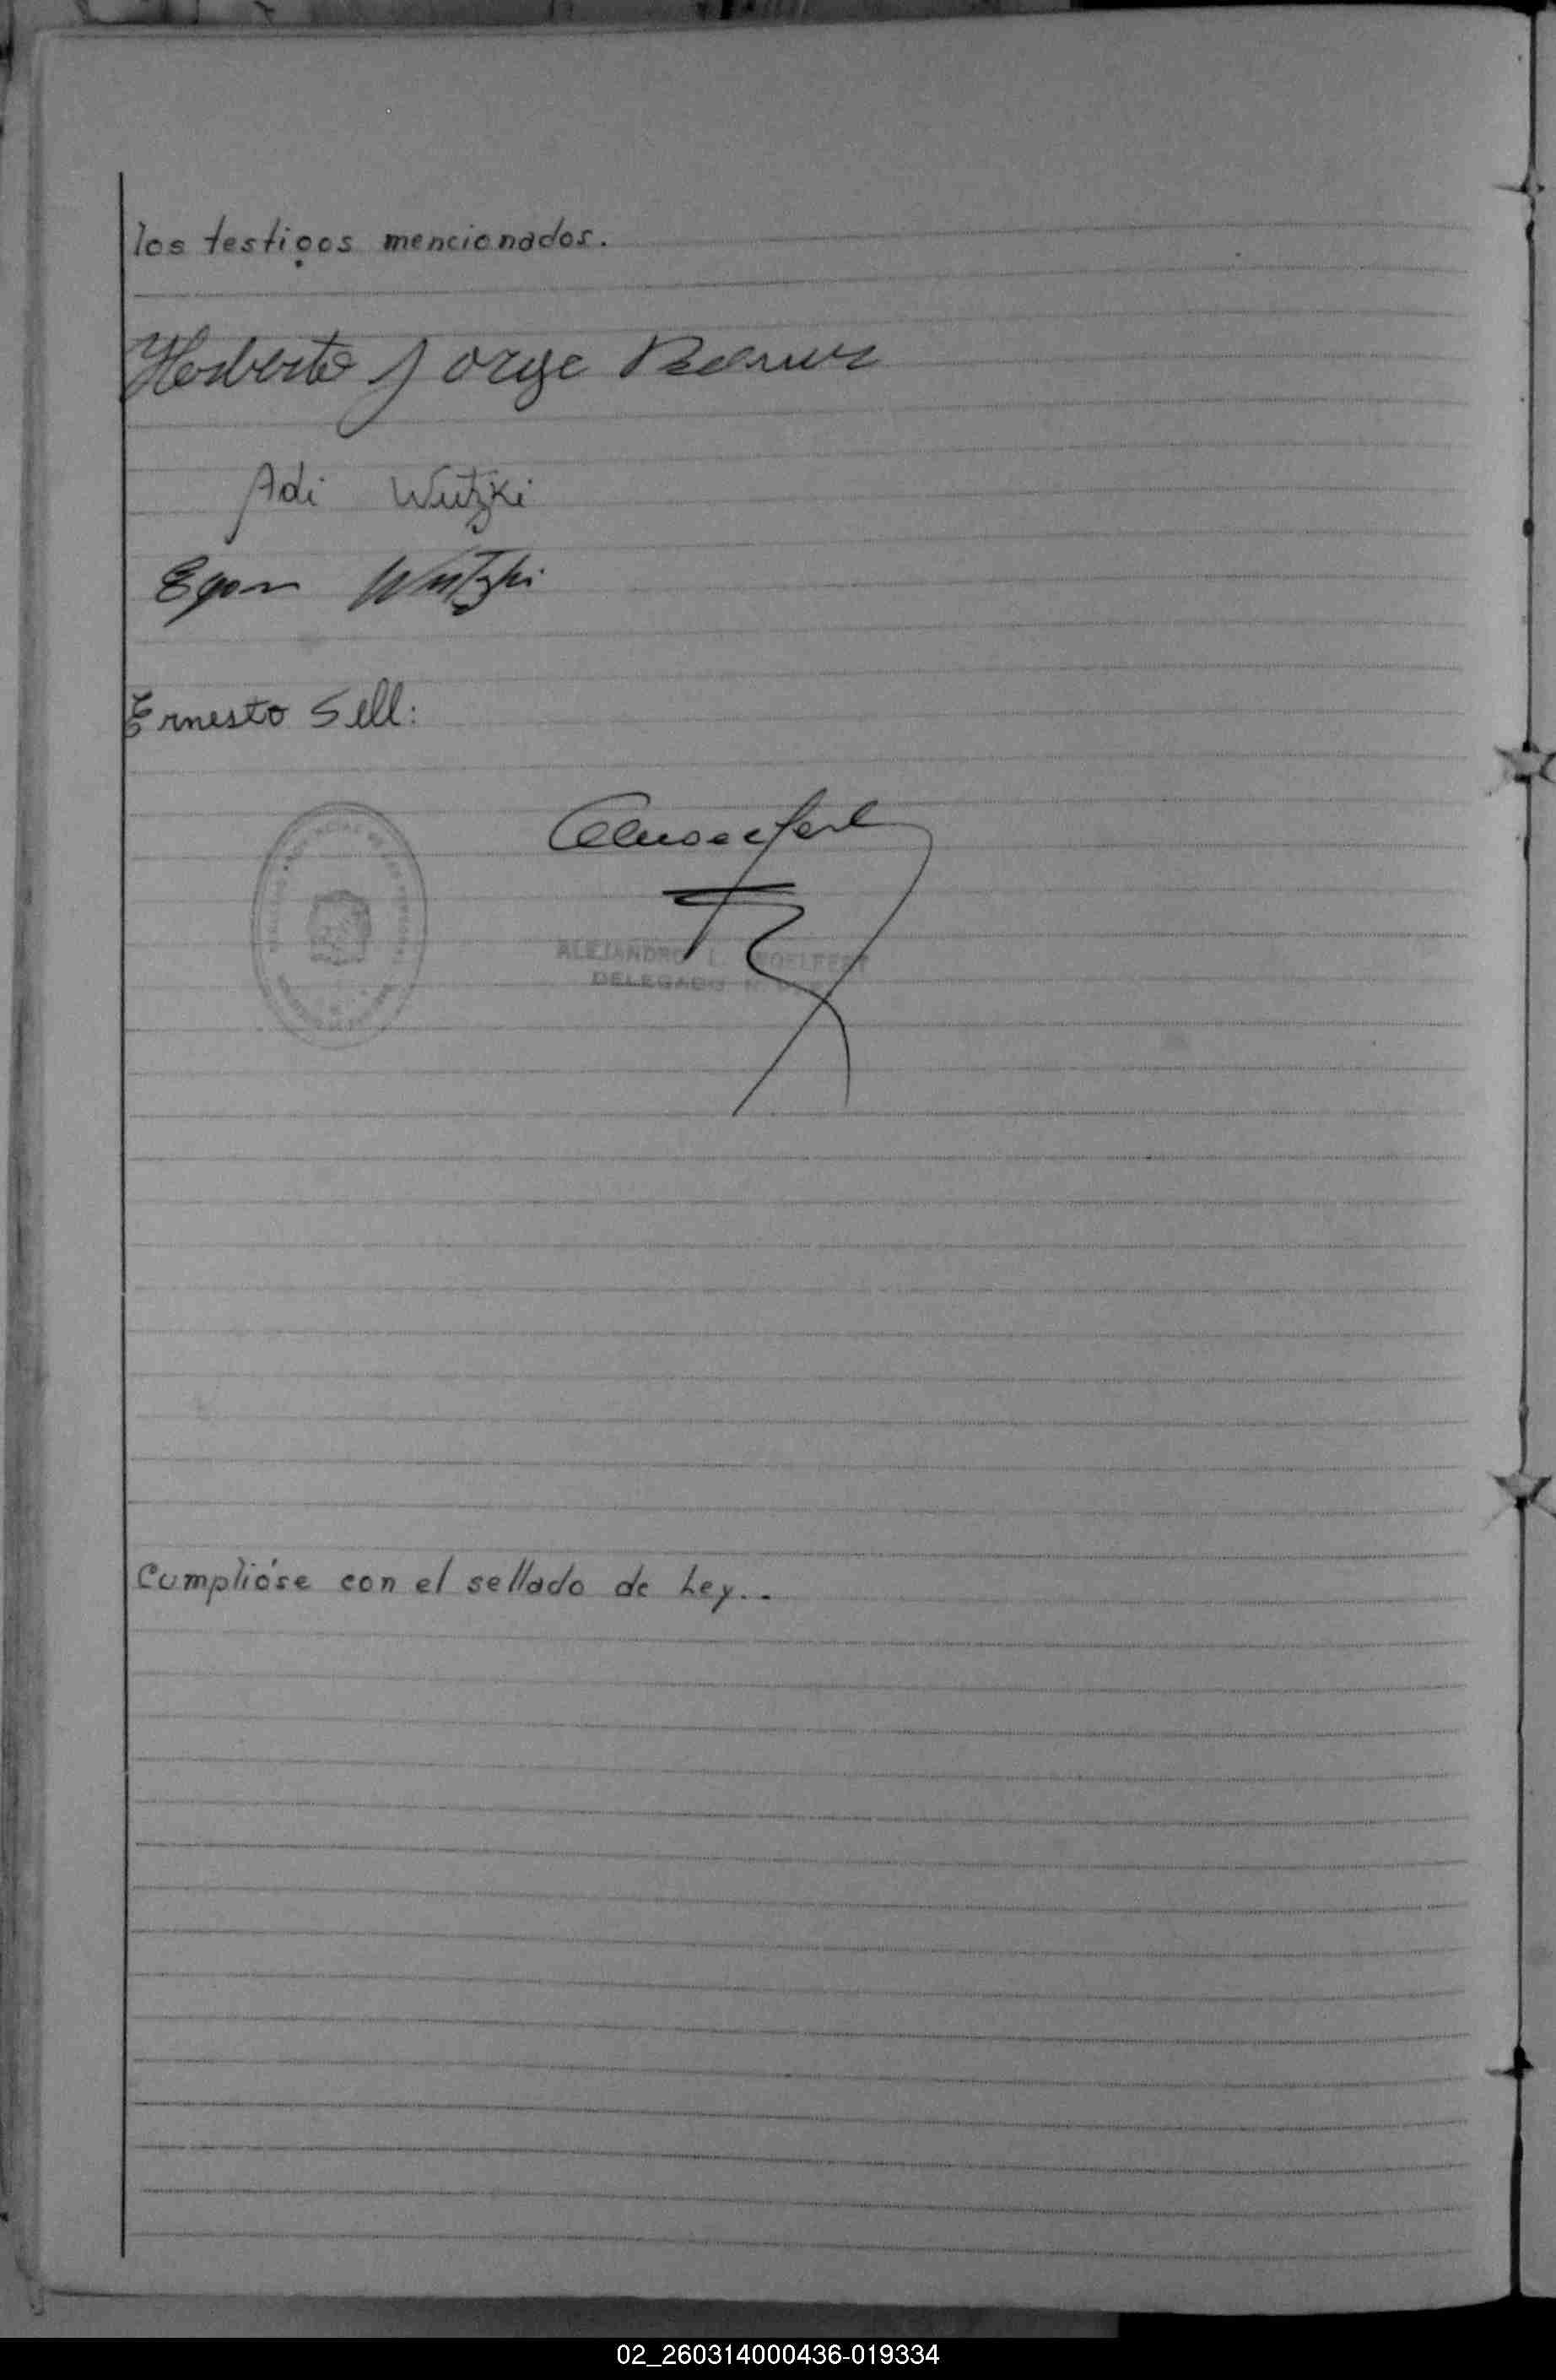 los testigos mencionados.
Herberto Jorge
Adi Wutzki
Egon Wutzki
Ernesto Sell:
ALEJANDRO L.
DELEGADO
Cumplióse con el sellado de Ley..
02_260314000436-019334